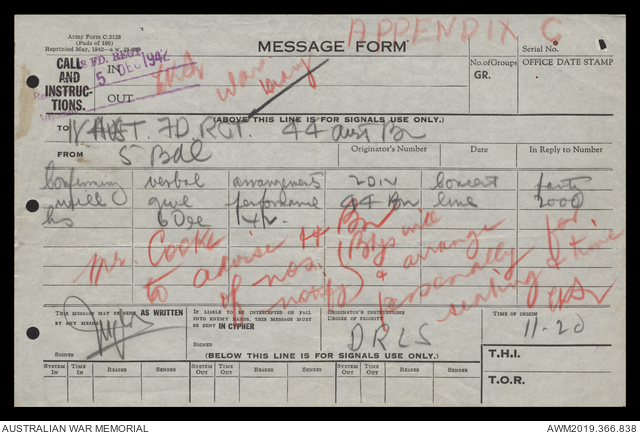 Army Form C.2128
(Pads of 100)
Reprinted May, 1942
APPENDIX C
MESSAGE FORM
Serial No.
CALL AND INSTRUCTIONS.
FD. REGT
IN
5 DEC 1942
OUT
War Diary
No. of Groups
GR.
OFFICE DATE STAMP
(ABOVE THIS LINE IS FOR SIGNALS USE ONLY.)
TO AUST. FD. RGT. 44 Aust Bn
FROM 5 Bde
Originator's Number
Date
In Reply to Number
Confirming verbal arrangements 2 DIV Concert party
will give performance 44 Bn lines 2000
hrs 6 Dec 42.
Mr. Cooke
to advise 44 Bn
of nos. (Btys will
notify & arrange
personally for
seating & time
THIS MESSAGE MAY BE SENT AS WRITTEN
BY ANY MEANS
SIGNED
IF LIABLE TO BE INTERCEPTED OR FALL
INTO ENEMY HANDS, THIS MESSAGE MUST
BE SENT IN CIPHER
SIGNED
ORIGINATOR'S INSTRUCTIONS
DEGREE OF PRIORITY
DRLS
TIME OF ORIGIN
11-20
(BELOW THIS LINE IS FOR SIGNALS USE ONLY.)
T.H.I.
T.O.R.
SYSTEM IN
TIME IN
READER
SENDER
SYSTEM OUT
TIME OUT
READER
SENDER
SYSTEM OUT
TIME OUT
READER
SENDER
AUSTRALIAN WAR MEMORIAL
AWM2019.366.838